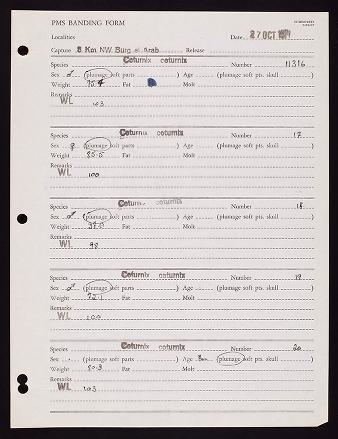 PMS BANDING FORM
Localities Date 27 OCT
Capture 8 Km NW. Burg el Arab Release
Species Coturnix coturnix Number 11316
Sex ♂ (plumage soft parts ) Age (plumage soft pts. skull )
Weight Fat Molt
Remarks
WL 103
Species Coturnix coturnix Number 17
Sex ♀ (plumage soft parts ) Age (plumage soft pts. skull )
Weight 85.5 Fat Molt
Remarks
WL 100
Species Coturnix coturnix Number 18
Sex ♂ (plumage soft parts ) Age (plumage soft pts. skull )
Weight Fat Molt
Remarks
WL 98
Species Coturnix coturnix Number 19
Sex ♂ (plumage soft parts ) Age (plumage soft pts. skull )
Weight Fat Molt
Remarks
WL 100
Species Coturnix coturnix Number 20
Sex (plumage soft parts ) Age (plumage soft pts. skull )
Weight 80.3 Fat Molt
Remarks
WL 103